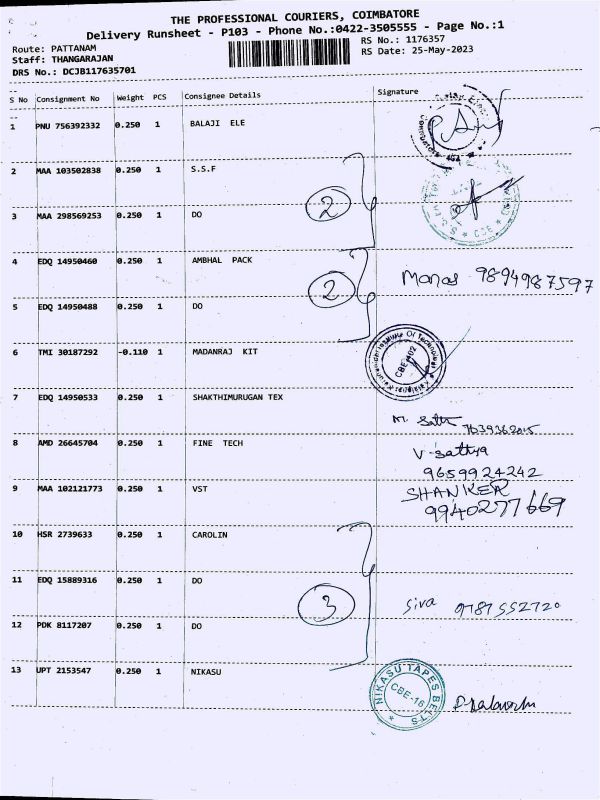 THE PROFESSIONAL COURIERS, COIMBATORE
Delivery Runsheet - P103 - Phone No.:0422-3505555 - Page No.:1
Route: PATTANAM
RS No.: 1176357
Staff: THANGARAJAN
RS Date: 25-May-2023
DRS No.: DCJB117635701
S No Consignment No Weight PCS Consignee Details Signature
1 PNU 756392332 0.250 1 BALAJI ELE
2 MAA 103502838 0.250 1 S.S.F
2
3 MAA 298569253 0.250 1 DO
CBE
4 EDQ 14950460 0.250 1 AMBHAL PACK
2 Manas 9894987597
5 EDQ 14950488 0.250 1 DO
6 TMI 30187292 -0.110 1 MADANRAJ KIT
Of Technology
CBE-402
7 EDQ 14950533 0.250 1 SHAKTHIMURUGAN TEX
M. 7639362015
8 AMD 26645704 0.250 1 FINE TECH V-sathya
9659924242
9 MAA 102121773 0.250 1 VST SHANKER
9940277669
10 HSR 2739633 0.250 1 CAROLIN
11 EDQ 15889316 0.250 1 DO
3 Siva 9787552720
12 PDK 8117207 0.250 1 DO
13 UPT 2153547 0.250 1 NIKASU
NIKASU TAPES BELTS
CBE-16